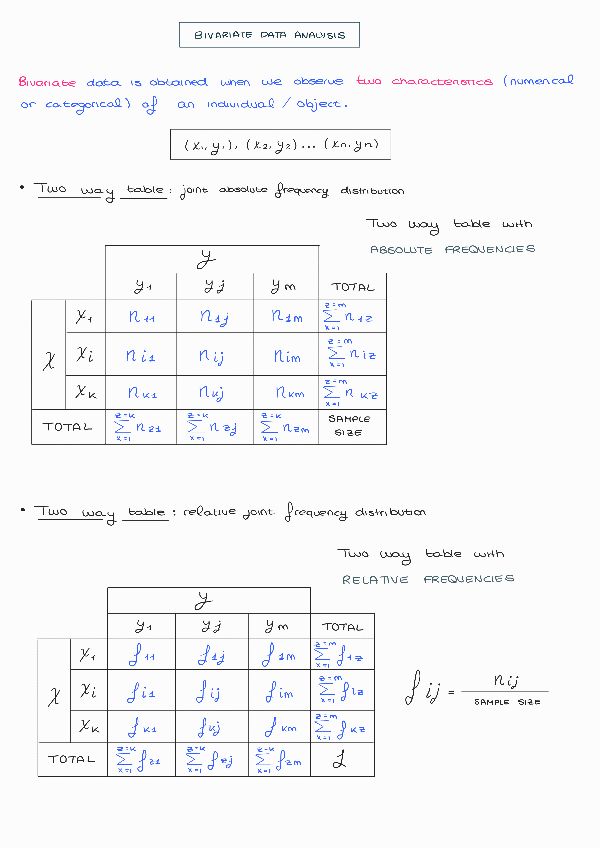 BIVARIATE DATA ANALYSIS
Bivariate data is obtained when we observe two characteristics (numerical
or categorical) of an individual / object.
(x₁, y₁), (x₂, y₂) ... (xn, yn)
• Two way table: joint absolute frequency distribution
Two way table with
ABSOLUTE FREQUENCIES
y
y1 yj ym TOTAL
x1 n11 n1j n1m z=m ∑ x=1 n1z
x xi ni1 nij nim z=m ∑ x=1 niz
xk nk1 nkj nkm z=m ∑ x=1 nkz
TOTAL z=k ∑ x=1 nz1 z=k ∑ x=1 nzj z=k ∑ x=1 nzm SAMPLE SIZE
• Two way table: relative joint frequency distribution
Two way table with
RELATIVE FREQUENCIES
y
y1 yj ym TOTAL
x1 f11 f1j f1m z=m ∑ x=1 f1z
x xi fi1 fij fim z=m ∑ x=1 fiz
xk fk1 fkj fkm z=m ∑ x=1 fkz
TOTAL z=k ∑ x=1 fz1 z=k ∑ x=1 fzj z=k ∑ x=1 fzm 1
fij = nij / SAMPLE SIZE